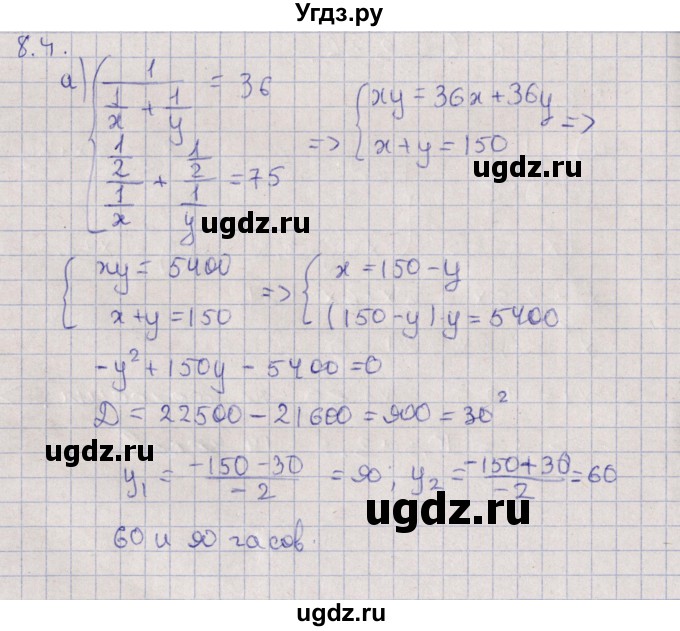 Угдз.ру
8.4.
а) { 1/(1/x + 1/y) = 36
(1/2)/(1/x) + (1/2)/(1/y) = 75
=> { xy = 36x + 36y
x + y = 150 =>
ugdz.ru
ugdz.ru
{ xy = 5400
x + y = 150
=> { x = 150 - y
(150 - y) y = 5400
-y² + 150y - 5400 = 0
ugdz.ru
ugdz.ru
D = 22500 - 21600 = 900 = 30²
y₁ = (-150 - 30)/(-2) = 90; y₂ = (-150 + 30)/(-2) = 60
ugdz.ru
ugdz.ru
60 и 90 часов.
ugdz.ru